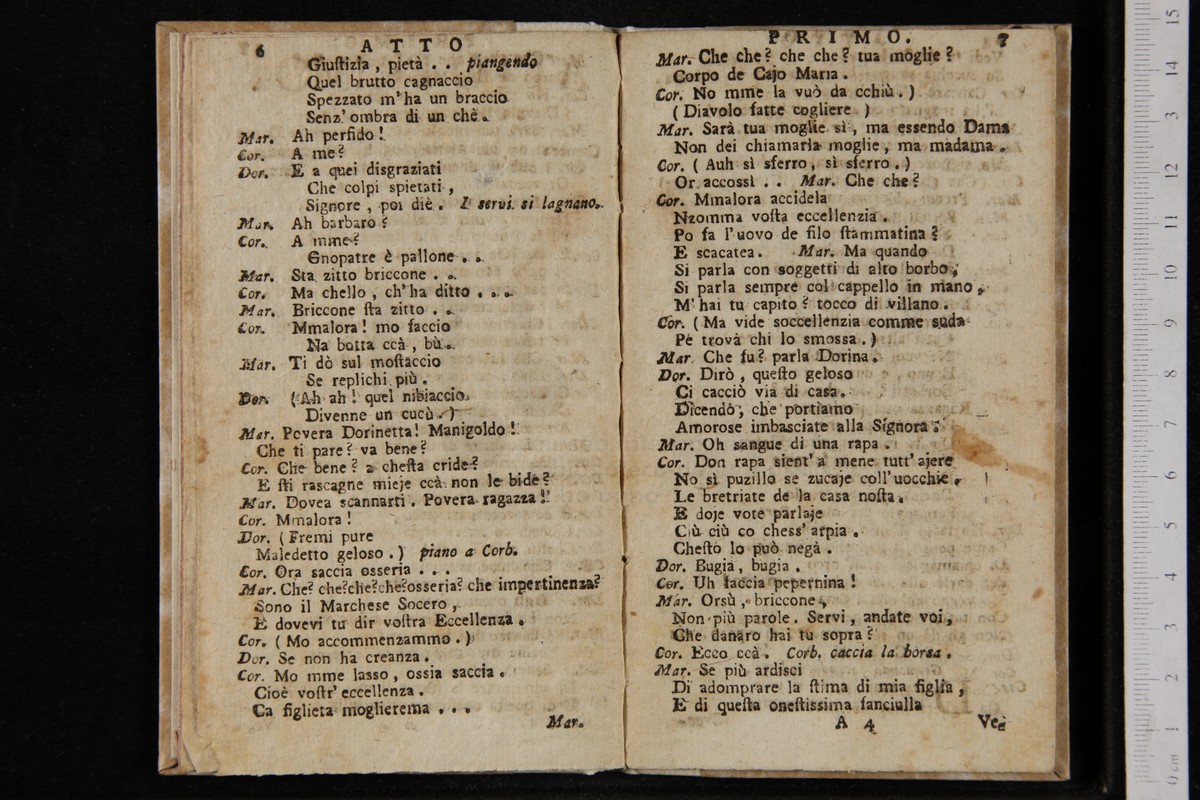 6 A T T O
Giuſtizia , pietà . . piangendo
Quel brutto cagnaccio
Spezzato m'ha un braccio
Senz' ombra di un chè.
Mar. Ah perfido !
Cor. A me ?
Dor. E a quei disgraziati
Che colpi spietati ,
Signore , poi diè . I servi si lagnano.
Mar. Ah barbaro ?
Cor. A mme ?
Gnopatre è pallone . .
Mar. Sta zitto briccone . .
Cor. Ma chello , ch'ha ditto . . .
Mar. Briccone ſta zitto . .
Cor. Mmalora ! mo faccio
Na botta ccà , bù .
Mar. Ti dò sul moſtaccio
Se replichi più .
Dor. ( Ah ah ! quel nibiaccio
Divenne un cucù . )
Mar. Povera Dorinetta ! Manigoldo !
Che ti pare ? va bene ?
Cor. Che bene ? a cheſta cride ?
E ſti rascagne mieje ccà non le bide ?
Mar. Dovea scannarti . Povera ragazza !
Cor. Mmalora !
Dor. ( Fremi pure
Maledetto geloso . ) piano a Corb.
Cor. Ora saccia osseria . . .
Mar. Che? che?che?che?osseria? che impertinenza?
Sono il Marchese Socero ,
E dovevi tu dir voſtra Eccellenza .
Cor. ( Mo accommenzammo . )
Dor. Se non ha creanza .
Cor. Mo mme lasso , ossia saccia .
Cioè voſtr' eccellenza .
Ca figlieta moglierema . . .
Mar.
P R I M O. 7
Mar. Che che ? che che ? tua moglie ?
Corpo de Cajo Maria .
Cor. No mme la vuò da cchiù . )
( Diavolo fatte cogliere )
Mar. Sarà tua moglie sì , ma essendo Dama
Non dei chiamarla moglie , ma madama .
Cor. ( Auh sì sferro , sì sferro . )
Or accossì . . Mar. Che che ?
Cor. Mmalora accidela
Nzomma voſta eccellenzia .
Po fa l'uovo de filo ſtammatina ?
E scacatea . Mar. Ma quando
Si parla con soggetti di alto borbo ,
Si parla sempre col cappello in mano ,
M' hai tu capito ? tocco di villano .
Cor. ( Ma vide soccellenzia comme suda
Pe trovà chi lo smossa . )
Mar Che fu ? parla Dorina .
Dor. Dirò , queſto geloso
Ci cacciò via di casa .
Dicendo , che portiamo
Amorose imbasciate alla Signora .
Mar. Oh sangue di una rapa .
Cor. Don rapa sient' a mene tutt' ajere
No sì puzillo se zucaje coll' uocchie ,
Le bretriate de la casa noſta .
E doje vote parlaje
Ciù ciù co chess' arpia .
Cheſto lo può negà .
Dor. Bugia , bugia .
Cor. Uh faccia pepernina !
Mar. Orsù , briccone ,
Non più parole . Servi , andate voi ,
Che danaro hai tu sopra ?
Cor. Ecco ccà . Corb. caccia la borsa .
Mar. Se più ardisci
Di adomprare la ſtima di mia figlia ,
E di queſta oneſtissima fanciulla
A 4 Ve-